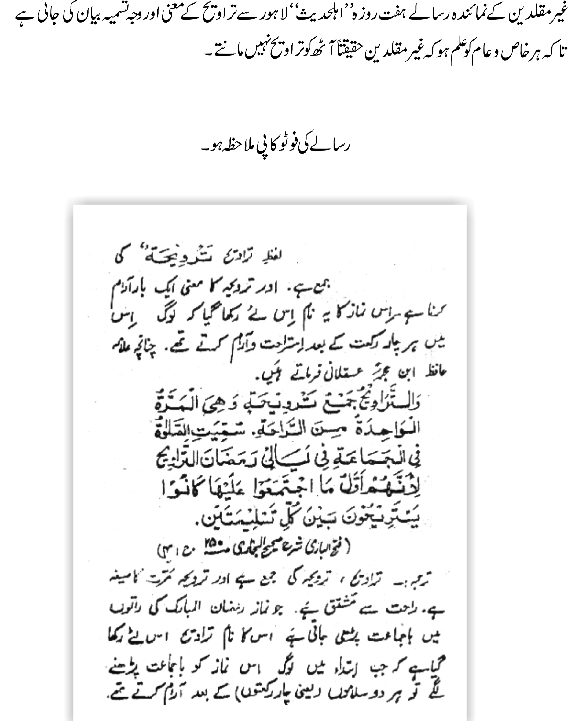 غیر مقلدین کے نمائندہ رسالے ہفت روزہ "اہلحدیث" لاہور سے تراویح کے معنی اور وجہ تسمیہ بیان کی جاتی ہے
تا کہ ہر خاص و عام کو علم ہو کہ غیر مقلدین حقیقتاً آٹھ کو تراویح نہیں مانتے۔
رسالے کی فوٹو کاپی ملاحظہ ہو۔
لفظ تراویح تَرْوِیْحَة" کی
جمع ہے۔ اور ترویحہ کا معنی ایک بار آرام
کرنا ہے۔ اس نماز کا یہ نام اِس لئے رکھا گیا کہ لوگ اِس
میں ہر چار رکعت کے بعد اِستراحت و آرام کرتے تھے۔ چنانچہ علامہ
حافظ ابن حجرؒ عسقلانی فرماتے ہیں۔
وَالتَّرَاوِيْحُ جَمْعُ تَرْوِيْحَةٍ وَهِيَ الْمَرَّةُ
الْوَاحِدَةُ مِنَ الرَّاحَةِ۔ سُمِّيَتِ الصَّلٰوةُ
فِي الْجَمَاعَةِ فِي لَيَالِي رَمَضَانَ التَّرَاوِيْحَ
لِأَنَّهُمْ أَوَّلَ مَا اجْتَمَعُوْا عَلَيْهَا كَانُوْا
يَسْتَرِيْحُوْنَ بَيْنَ كُلِّ تَسْلِيْمَتَيْنِ۔
(فتح الباری شرح صحیح البخاری ص۲۵۰ ج۴)
ترجمہ:۔ تراویح، ترویحہ کی جمع ہے اور ترویحہ مرّت کا صیغہ
ہے۔ راحت سے مشتق ہے۔ جو نماز رمضان المبارک کی راتوں
میں باجماعت پڑھی جاتی ہے اس کا نام تراویح اس لئے رکھا
گیا ہے کہ جب ابتداء میں لوگ اس نماز کو باجماعت پڑھنے
لگے تو ہر دو سلاموں (یعنی چار رکعتوں) کے بعد آرام کرتے تھے۔